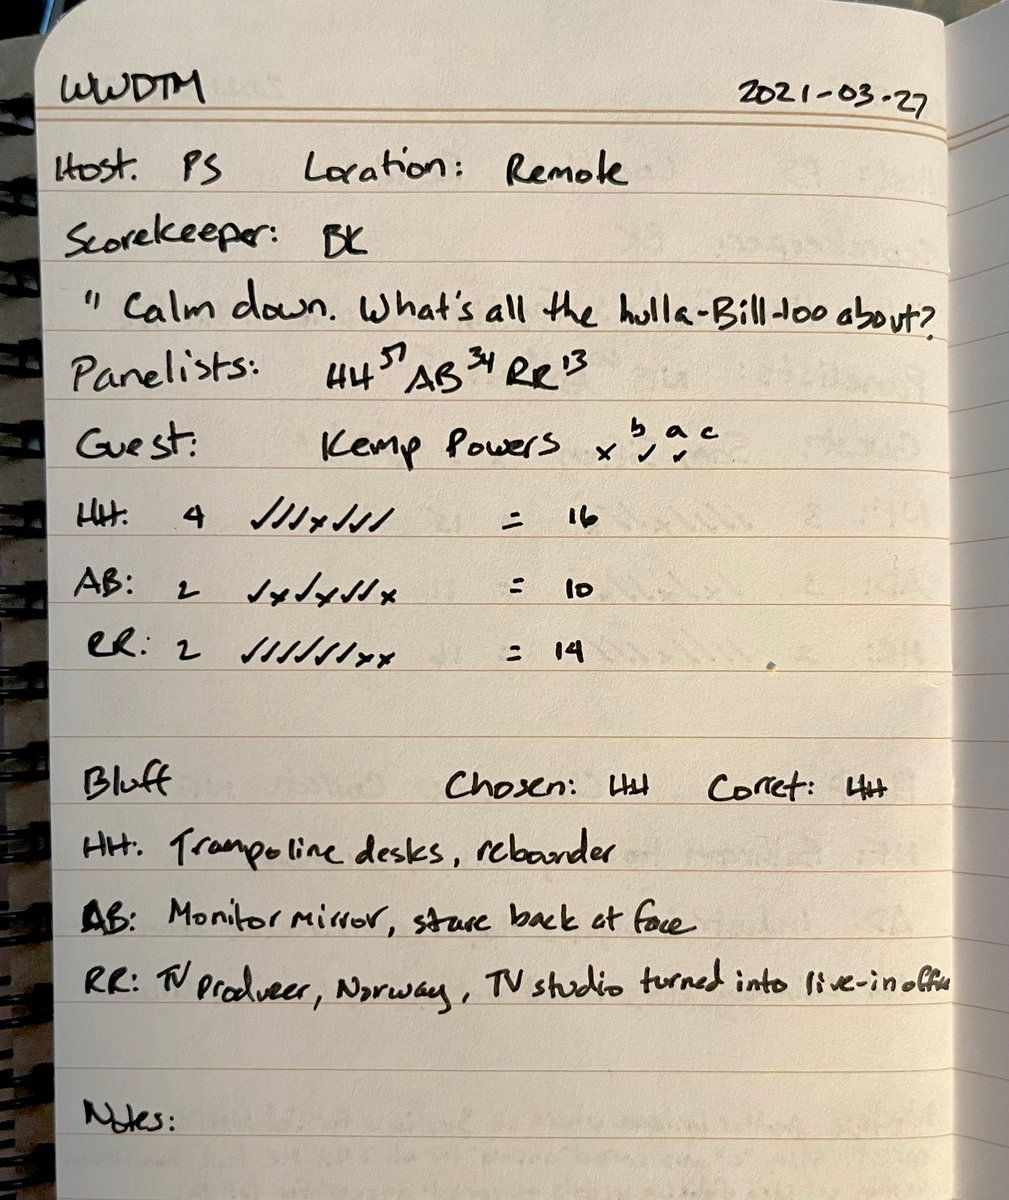 WWDTM 2021-03-27
Host: PS Location: Remote
Scorekeeper: BK
" Calm down. What's all the hulla-Bill-loo about?
Panelists: HH 51 AB 34 RR 13
Guest: Kemp Powers x b✓ a✓ c
HH: 4 ✓✓✓x✓✓✓ = 16
AB: 2 ✓x✓x✓✓x = 10
RR: 2 ✓✓✓✓✓✓xx = 14
Bluff Chosen: HH Corret: HH
HH: Trampoline desks, rebounder
AB: Monitor mirror, stare back at face
RR: TV Producer, Norway, TV studio turned into live-in office
Notes: